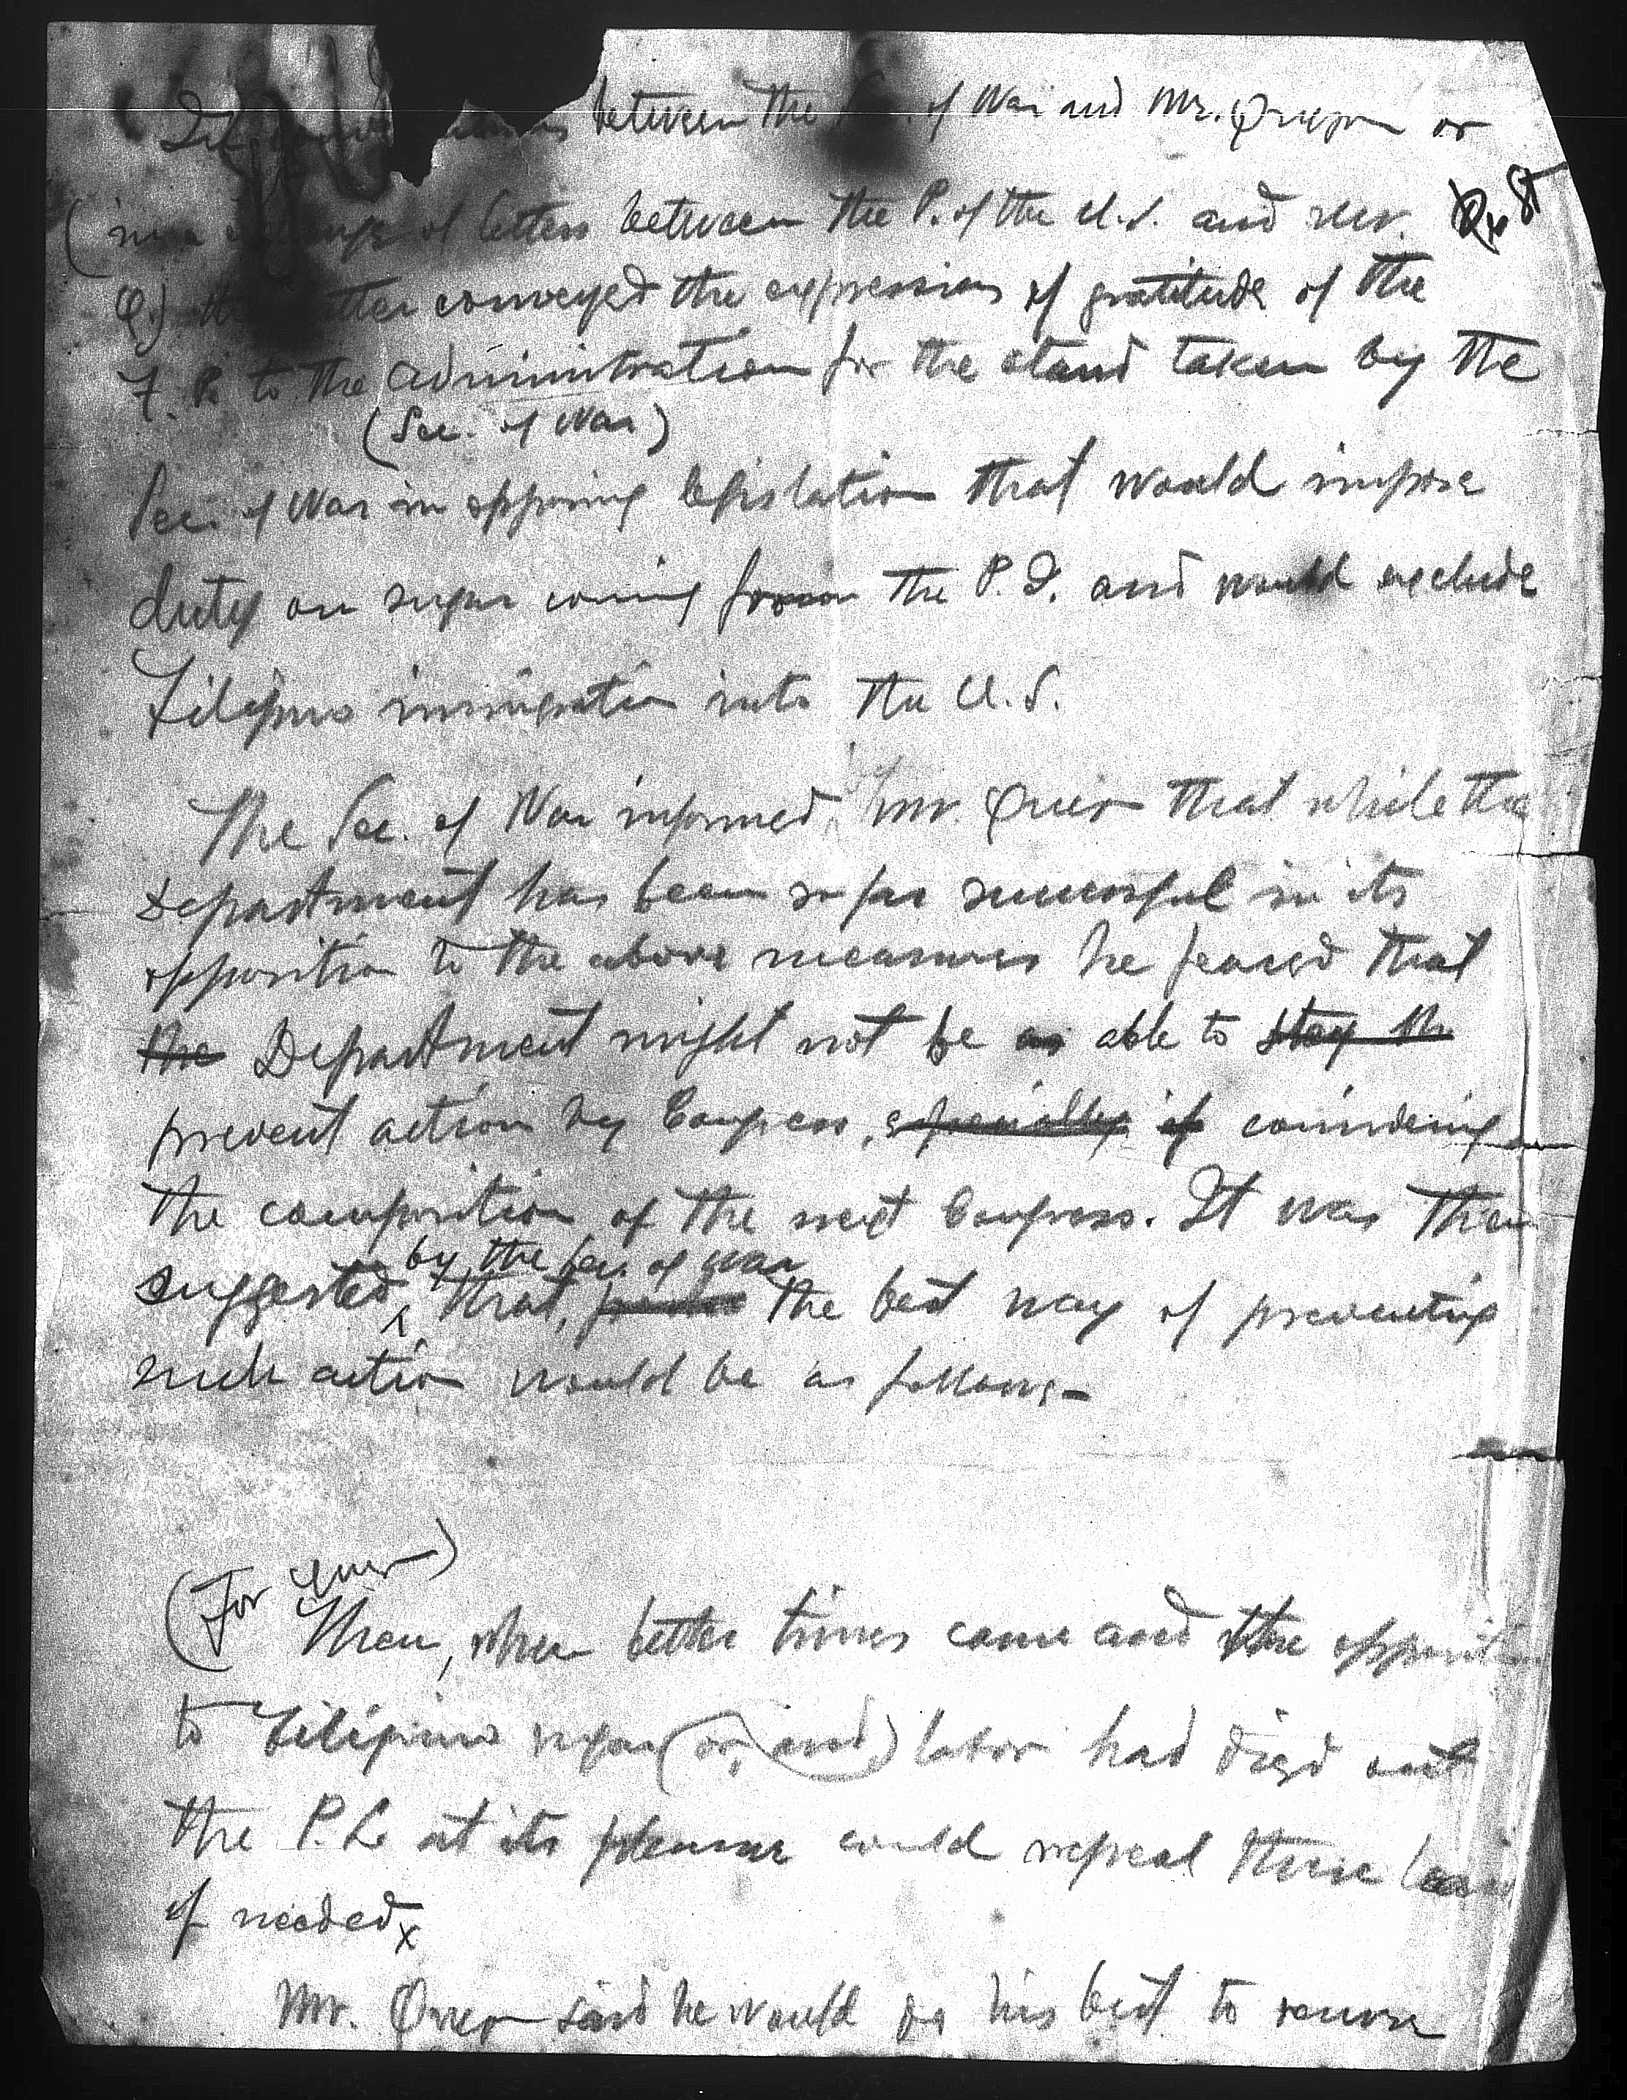 between the of War and Mr. Quezon or
( in a exchange of letters between the P. of the U.S. and Mr.
Q.) the latter conveyed the expressions of gratitude of the
F. P. to the administration for the stand taken by the
(Sec. of War)
Sec. of War in opposing legislation that would impose
duty on sugar coming from the P. I. and would exclude
Filipino immigration into the U.S.
The Sec. of War informed Mr. Quezon that while the
Department has been so far successful in its
opposition to the above measures he feared that
the Department might not be as able to stay th
prevent action by Congress, especially if considering
the composition of the next Congress. It was then
by the Sec. of War
suggested, that, the best way of preventing
such action would be as follows-
(For Quezon)
Then, when better times come and the opposition
to Filipino sugar (or, and) labor had died out
the P. L. at its pleasure could repeal these laws
if needed x
Mr. Quezon said he would do his best to secure